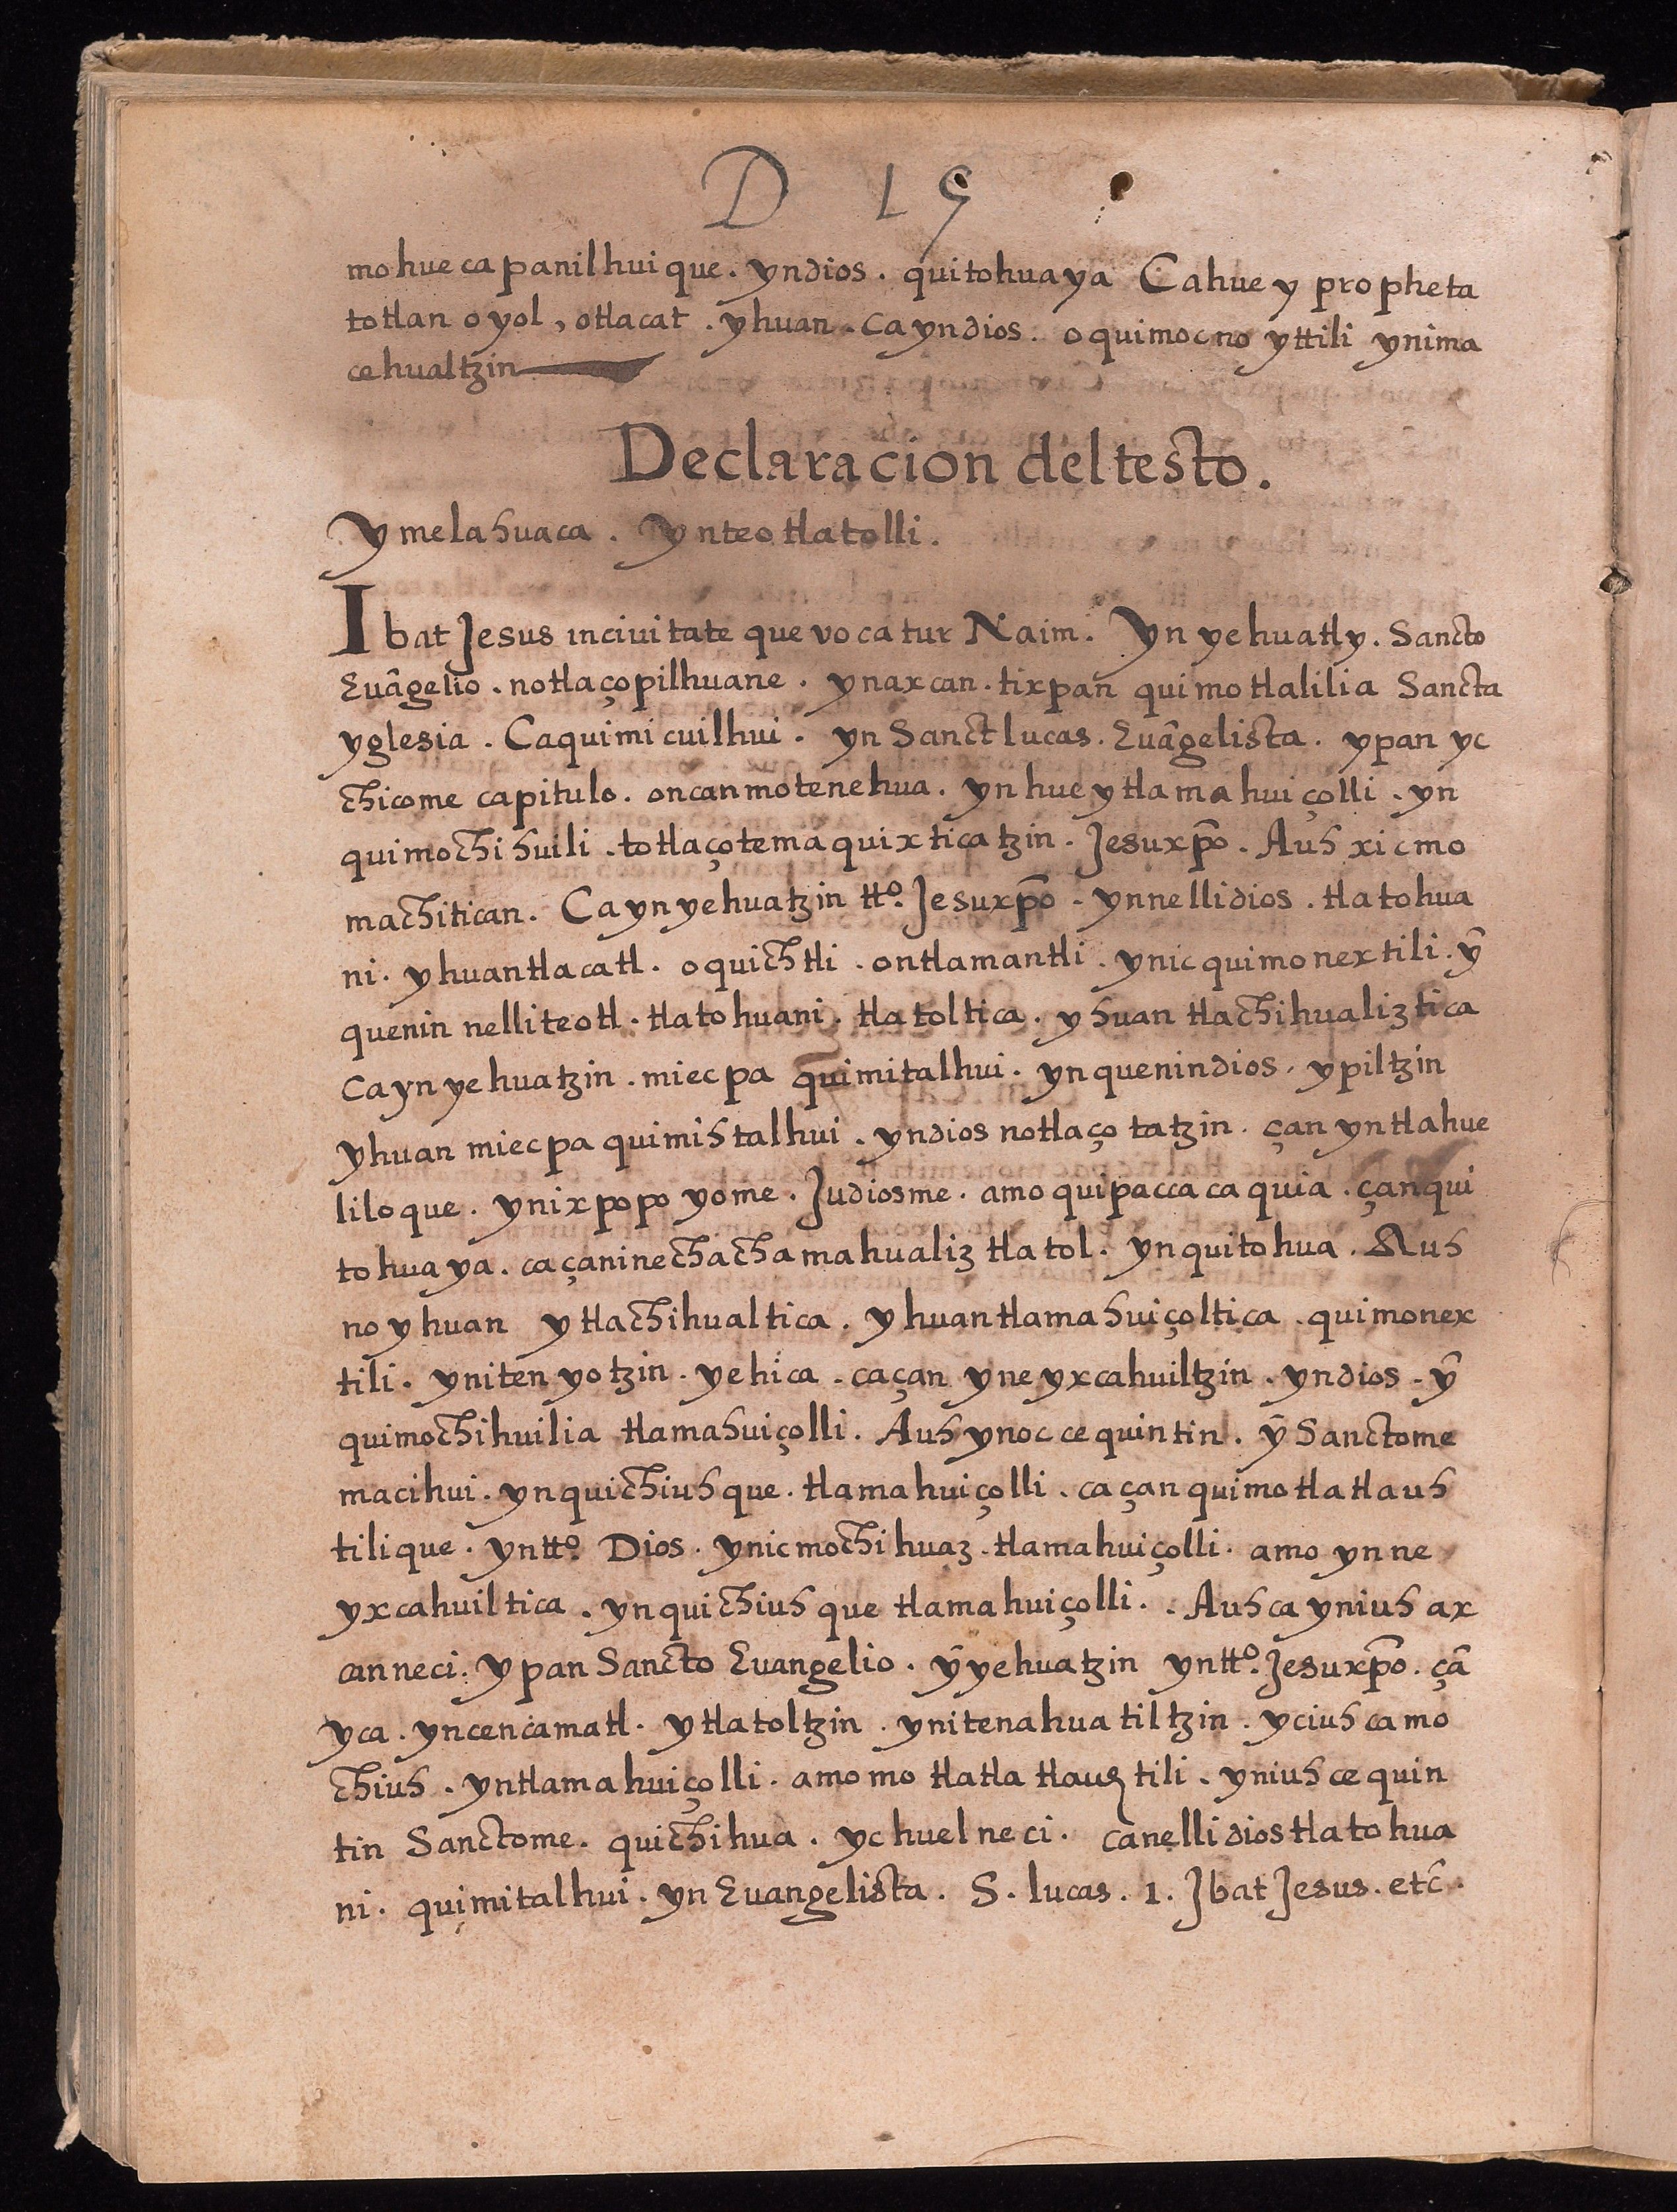 D 15
mohuecapanilhuique. yndios. quitohuaya Cahuey propheta
totlan oyol, otlacat. yhuan. cayndios. oquimocno yttili ynima
cehualtzin
Declaracion del testo.
Ymelahuaca. Ynteotlatolli.
Ibat Jesus inciuitate que vocatur Naim. Yn yehuatly. Sancto
Euãgelio. notlaçopilhuane. ynaxcan. tixpan quimotlalilia Sancta
yglesia. Caquimicuilhui. yn Sanct lucas. Euãgelista. ypan yc
chicome capitulo. oncanmotenehua. ynhueytlamahuiçolli. yn
quimochihuili. totlaçotemaquixticatzin. Jesuxp̃o. Auh xicmo
machitican. Caynyehuatzin tt.º Jesuxp̃o. ynnellidios. tlatohua
ni. yhuantlacatl. oquichtli. ontlamantli. ynicquimonextili. ỹ
quenin nelliteotl. tlatohuani. tlatoltica. yhuan tlachihualiztica
caynyehuatzin. miecpa quimitalhui. ynquenindios. ypiltzin
yhuan miecpa quimihtalhui. yndios notlaço tatzin. çan yntlahue
liloque. ynixpopoyome. Judiosme. amo quipaccacaquia. çanqui
tohuaya. caçaninechachamahualiz tlatol. ynquitohua. Auh
noyhuan ytlachihualtica. yhuantlamahuiçoltica. quimonex
tili. ynitenyotzin. yehica. caçan yneyxcahuiltzin. yndios. ỹ
quimochihuilia tlamahuiçolli. Auh ynoccequintin. ỹ Sanctome
macihui. ynquichiuhque. tlamahuiçolli. caçanquimotlatlauh
tilique. yntt.º Dios. ynicmochihuaz. tlamahuiçolli. amo ynne
yxcahuiltica. ynquichiuhque tlamahuiçolli.. Auhca yniuh ax
canneci. ypan Sancto Euangelio. ỹyehuatzin yntt.º Jesuxp̃o. çã
yca. yncencamatl. ytlatoltzin. ynitenahuatiltzin. yciuhcamo
chiuh. yntlamahuiçolli. amomo tlatlatlauhtili. yniuhcequin
tin Sanctome. quichihua. ychuelneci. canellidiostlatohua
ni. quimitalhui. yn Euangelista. S. lucas. 1. Jbat Jesus. etc̃.